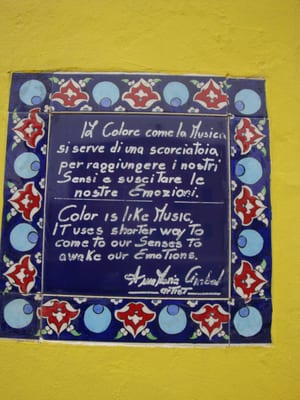 Il Colore come la Musica
si serve di una scorciatoia,
per raggiungere i nostri
Sensi e suscitare le
nostre Emozioni.
Color is like Music,
IT uses shorter way to
come to our Senses to
awake our Emotions.